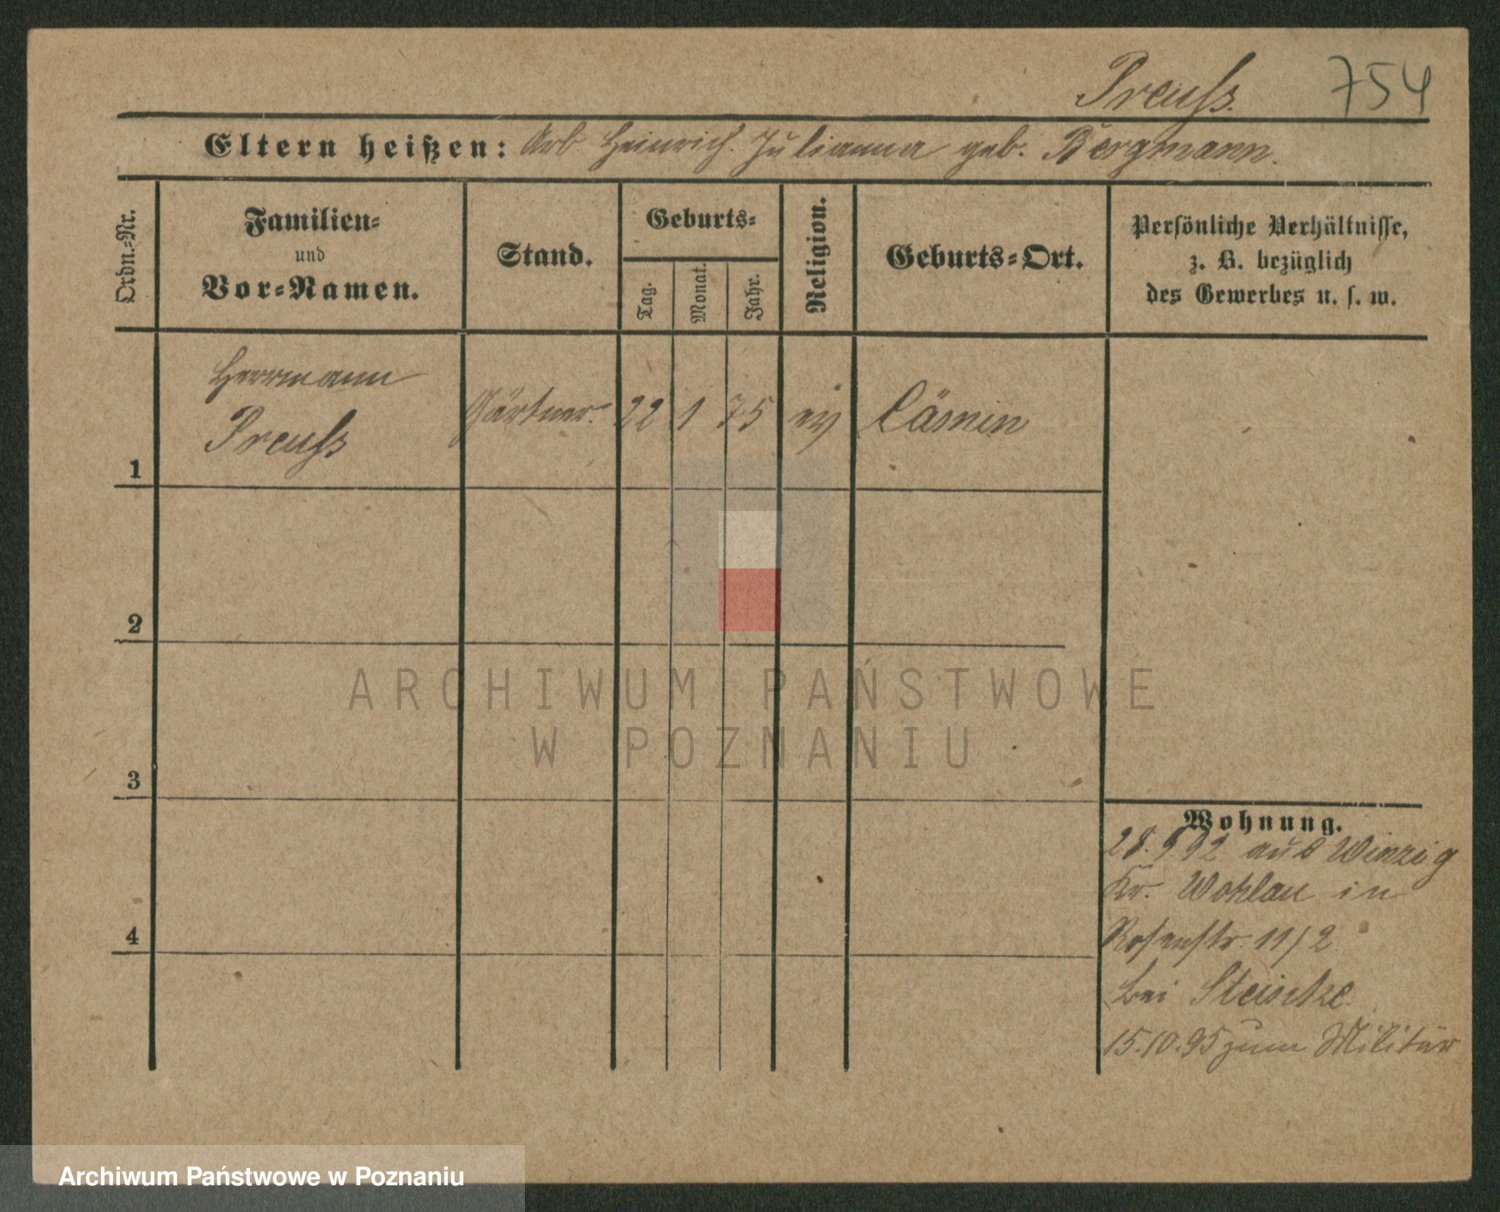 Preuß. 754
Eltern heißen: Arb Heinrich. Julianna geb. Bergmann.
Ordn.-Nr.
Familien-
und
Vor-Namen.
Stand.
Geburts-
Tag.
Monat.
Jahr.
Religion.
Geburts-Ort.
Persönliche Verhältnisse,
z. B. bezüglich
des Gewerbes u. s. w.
Herrmann
Preuß
Gärtner. 22 1 75 ev
1
2
ARCHIWUM PAŃSTWOWE
W POZNANIU
3
Wohnung.
28.9 92 aus Winzig
Kr. Wohlau in
4
Rosenstr. 11/2
bei
15.10.95 zum Militär
Archiwum Państwowe w Poznaniu